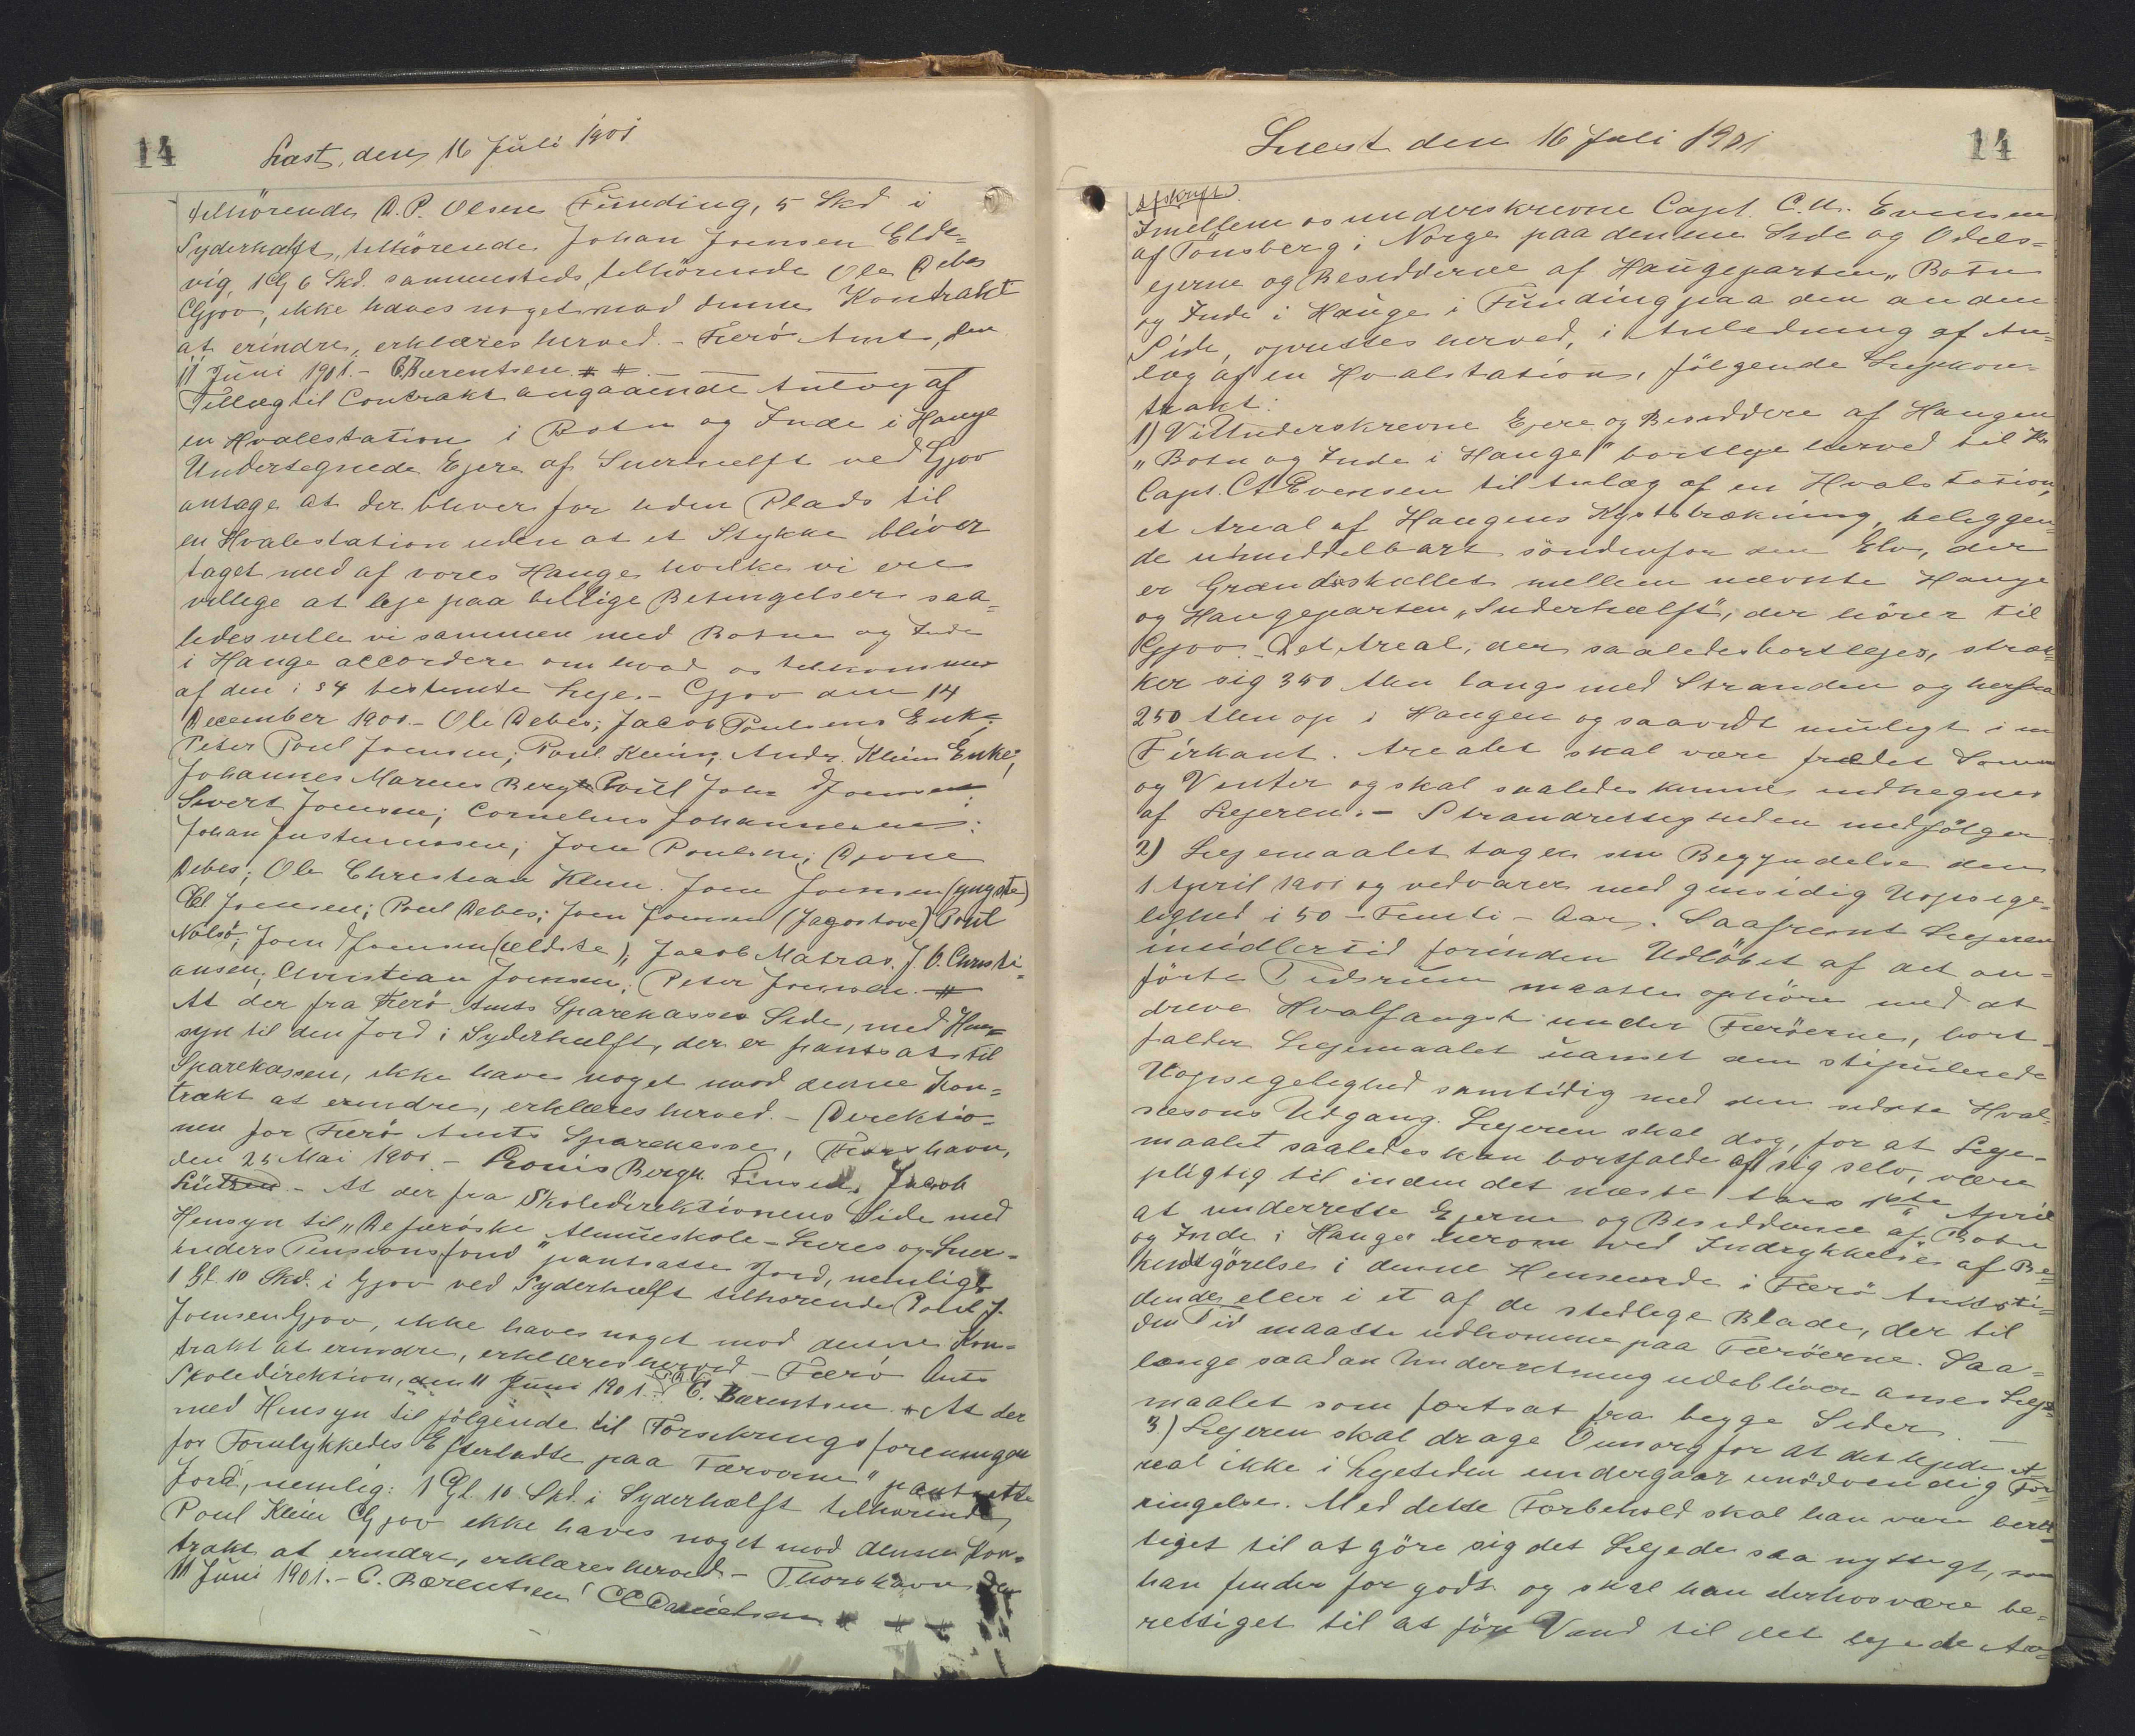 14
Læst, den 16 Juli 1901
tilhörende D. P. Olsen Funding, 5 Skd i
Syderhælft, tilhörende Johan Joensen Elde-
vig, 1 G 6 Skd. sammesteds, tilhörende Ole Debes
Gjov, ikke haves noget mod denne Kontrakt
at erindre, erklæres herved. - Færö Amt, den
11 Juni 1901. - C. Bærentsen.
Tillæg til Contrakt angaaende Anlæg af
en Hvalestation i Botn og Inde i Hauge
Undertegnede Ejere af Suerhælft ved Gjov
antage at der bliver for liden Plads til
en Hvalestation uden at et Stykke bliver
taget med af vores Hauge hvilke vi ere
villige at leje paa billige Betingelser saa-
ledes ville vi sammen med Botn og Inde
i Hauge accordere om hvad os tilkommer
af den i § 4 bestemte Leje. - Gjov den 14
December 1900. - Ole Debes; Jacob Poulsens Enke;
Peter Poul Joensen; Poul Klein; Andr. Kleins Enke;
Johannes Marcus Berg; Poul Joh. Joensen;
Sivert Joensen; Cornelius Johannesen;
Johan Justinussen; Joen Poulsen; Djone
Debes; Ole Christian Klein. Joen Joensen (yngste)
Ole Joensen; Poul Debes; Joen Joensen (Jagostove) Poul
Nolsö; Joen Joensen (ældste); Jacob Matras. J. O. Christi-
ansen; Christian Joensen; Peter Joensen.
At der fra Færö Amts Sparekasses Side, med Hen-
syn til den Jord i Syderhælft, der er pantsat til
Sparekassen, ikke haves noget mod denne Kon-
trakt at erindre, erklæres herved. - Direktio-
nen for Færö Amts Sparekasse, Thorshavn,
den 25 Mai 1901. - Louis Bergh. Finsen. Jacob
Lützen. - At der fra Skoledirektionens Side med
Hensyn til "De færöske Almueskole-Lærer og Lærer-
inders Pensionsfond" pantsatte Jord, nemlig
1 Gl. 10 Skd. i Gjov ved Syderhælft tilhørende Poul J.
Joensen Gjov, ikke haves noget mod denne Kon-
trakt at erindre, erklæres herved. - Færö Amts
Skoledirektion, den 11 Juni 1901. C. Bærentsen. At der
med Hensyn til følgende til "Forsikringsforeningen
for Forulykkedes Efterladte paa Færøerne" pantsatte
Jord, nemlig: 1 Gl. 10 Skd. i Syderhælft tilhørende
Poul Klein Gjov ikke haves noget mod denne Kon-
trakt at erindre, erklæres herved. - Thorshavn den
11 Juni 1901. - C. Bærentsen CC Danielsen
Læst den 16 Juli 1901
14
Afskrift.
Imellem os underskrevne Capt. C. A. Evensen
af Tönsberg i Norge paa den ene Side og Odels-
ejerne og Besidderne af Haugeparten "Botn
og Inde i Hauge i Funding paa den anden
Side, oprettes herved, i Anledning af An-
læg af en Hvalstation, fölgende Lejekon-
trakt:
1) Vi Underskrevne Ejere og Besiddere af Haugen
"Botn og Inde i Hauge" bortleje herved til Hr
Capt. C A Evensen til Anlæg af en Hvalstation,
et Areal af Haugens Kyststrækning, beliggen-
de umiddelbart söndenfor den Elv, der
er Grændseskellet mellem nævnte Hauge
og Haugeparten "Suderhælft", der hörer til
Gjov. - Det Areal, der saaledes bortlejes, stræk-
ker sig 350 Alen langs med Stranden og herfra
250 Alen op i Haugen og saavidt muligt i en
Firkant. Arealet skal være frædet Sommer
og Vinter og skal saaledes kunne indhegnes
af Lejeren. - Strandrettigheden medfölger.
2) Lejemaalet tager sin Begyndelse den
1 April 1901 og vedvarer med gensidig Uopsige-
lighed i 50 - Femti - Aar. Saafremt Lejeren
imidlertid forinden Udlöbet af det an-
förte Tidsrum maatte ophöre med at
drive Hvalfangst under Færöerne, bort-
falder Lejemaalet uanset den stipulerede
Uopsigelighed samtidig med den sidste Hval-
sæsons Udgang. Lejeren skal dog, for at Leje-
maalet saaledes kan bortfalde af sig selv, være
pligtig til inden det næste Aars 1ste April
at underrette Ejerne og Besidderne af Botn
og Inde i Hauge herom ved Indrykkelse af Be-
kendtgörelse i denne Henseende i Færö Amtsti-
dende eller i et af de stedlige Blade, der til
den Tid maatte udkomme paa Færöerne. Saa-
længe saadan Underretning udebliver anses Leje-
maalet som fortsat fra begge Sider. -
3) Lejeren skal drage Omsorg for at det lejede A-
real ikke i Lejetiden undergaar unödvendig For-
ringelse. Med dette Forbehold skal han være beret-
tiget til at göre sig det Lejede saa nyttigt, som
han finder for godt og skal han derhos være be-
rettiget til at före Vand til det lejede Are-